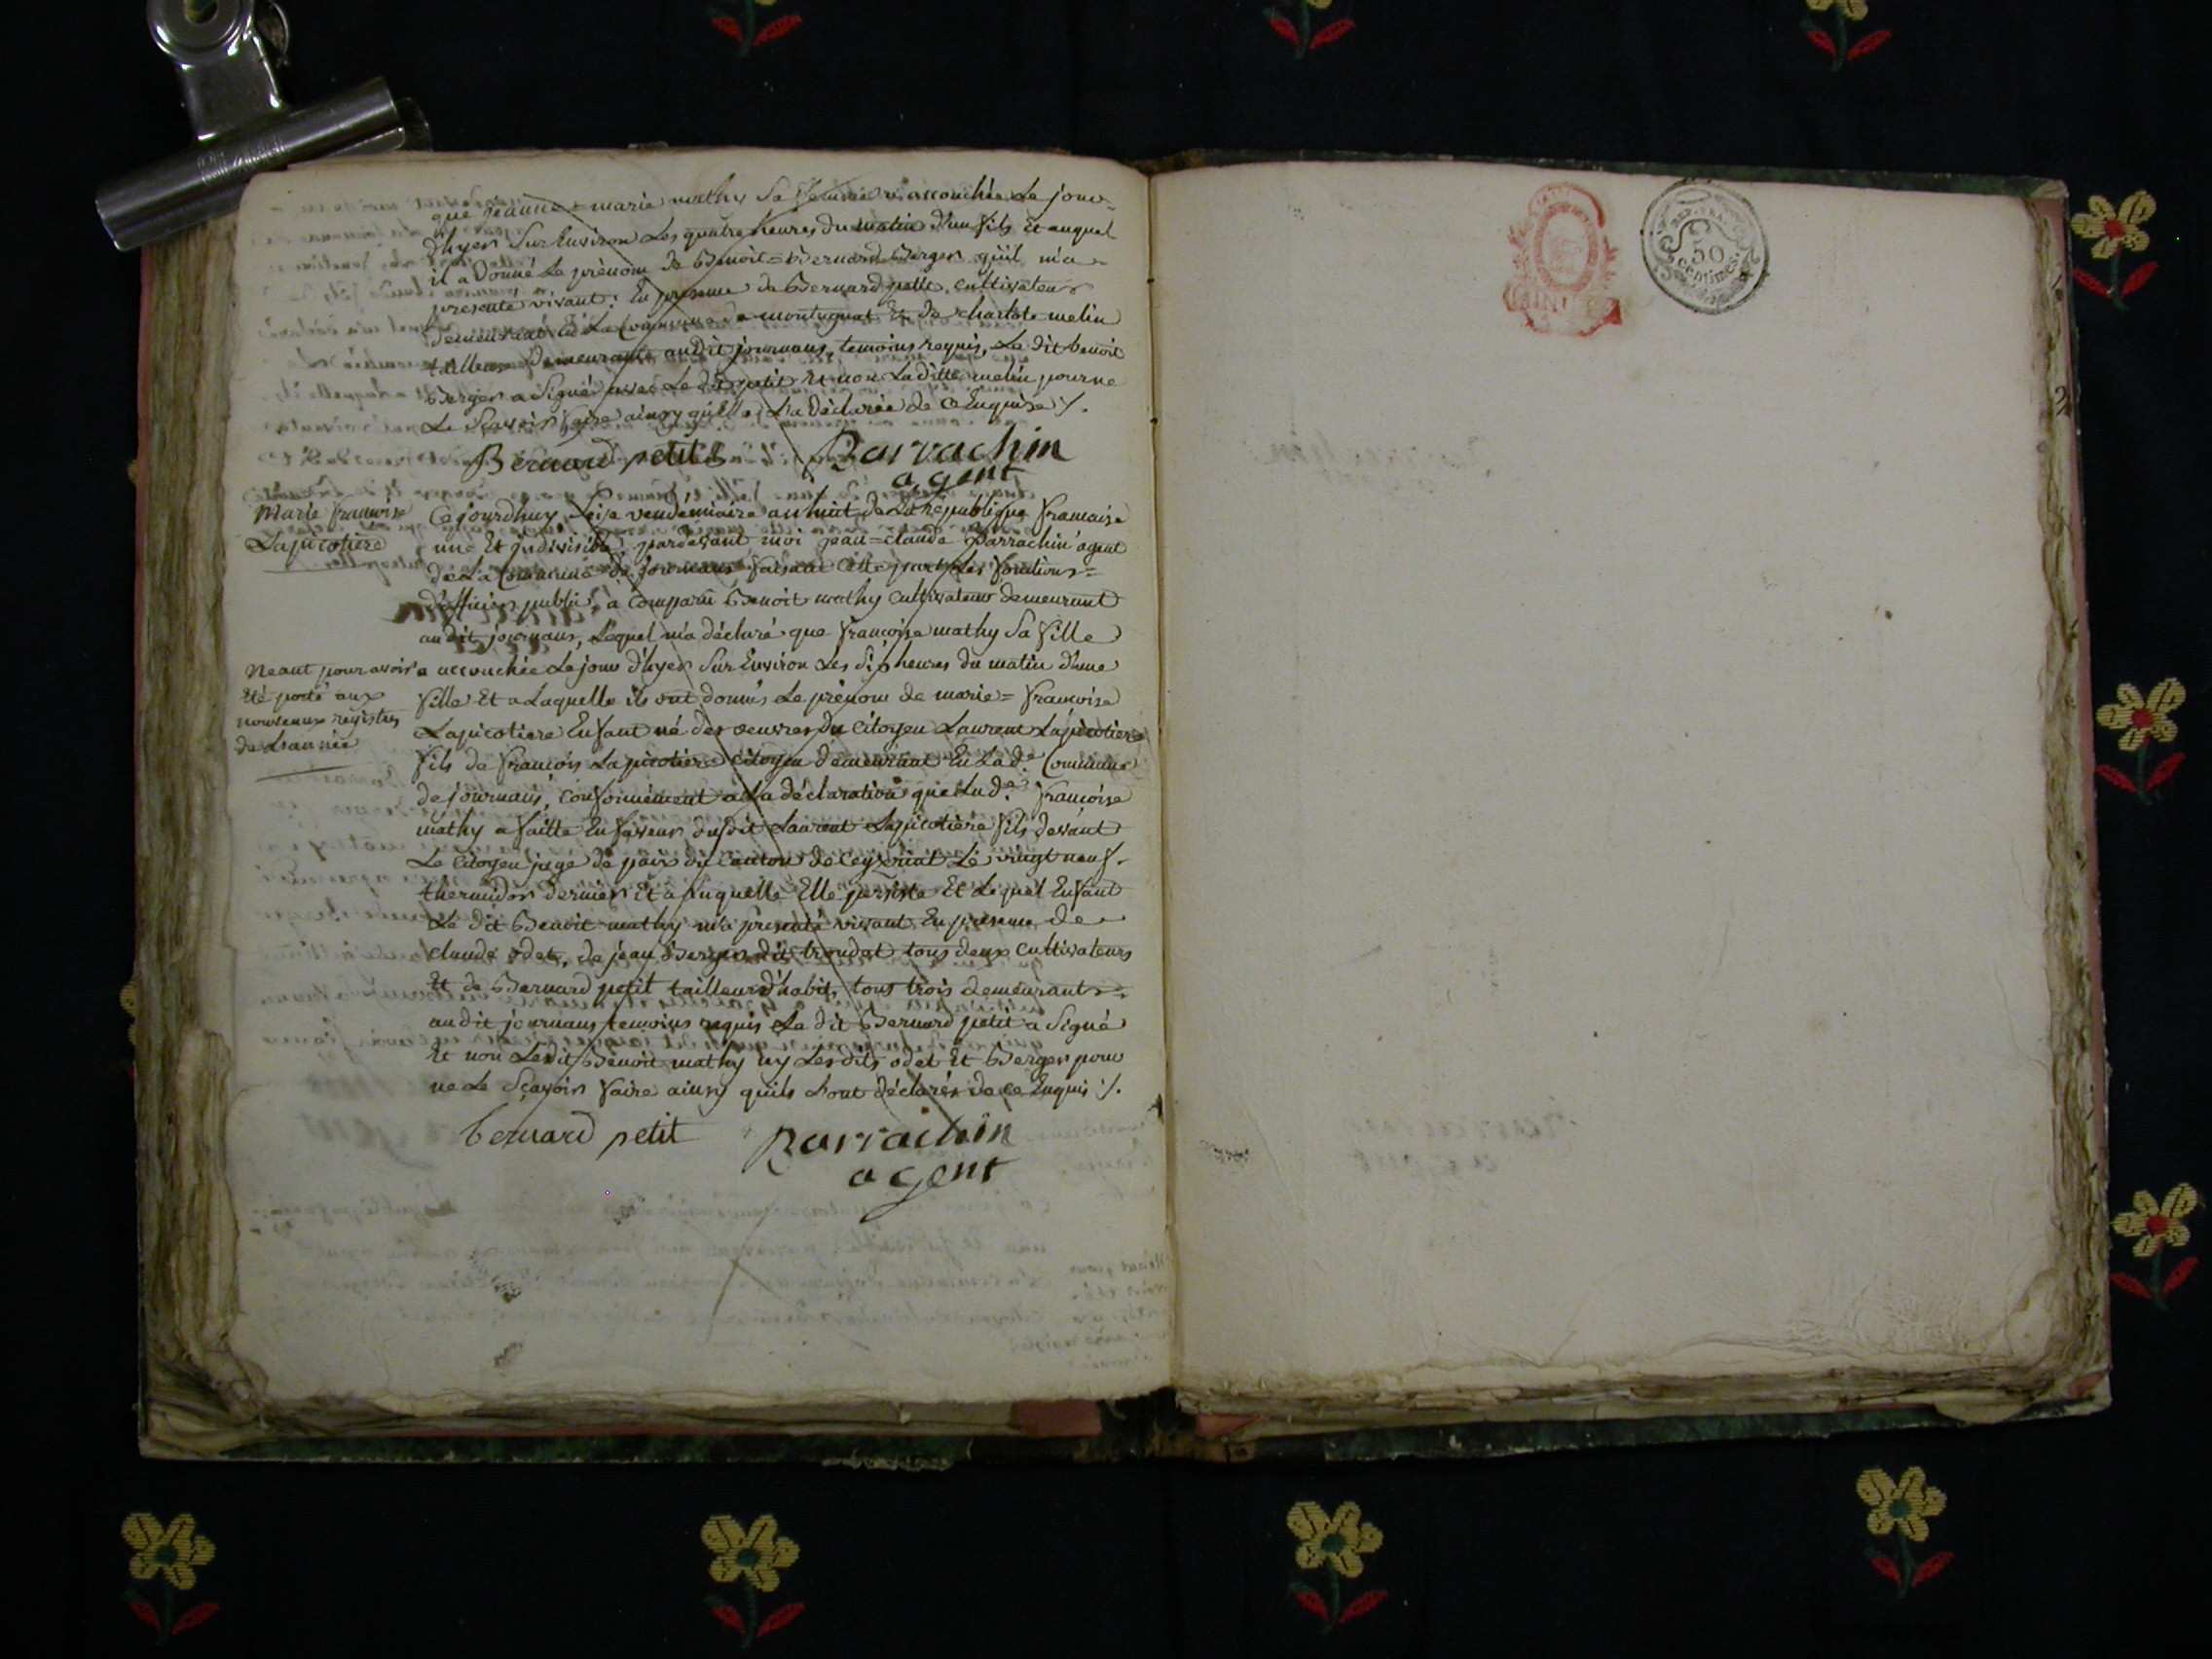 que jeanne=marie mathy Sa femme a accouchée Le jour
d'hyer Sur Environ Les quatre heures du matin d'un fils Et auquel
il a Donné Le prénom de Benoit=Bernard Berger qu'il m'a
presenté vivant; En presence de Bernard petit, cultivateur
demeurant En La Commune de montagnat Et de charlote melin
tailleuse demeurante audit journans, temoins requis, Le dit benoit
Berger a Signé avec Le dit petit Et non Laditte melin pour ne
Le Sçavoir faire ainsy qu'Elle L'a déclarée de ce Enquise ./.
Bernard petit
Parrachin
agent
Marie francoise
Lapicotiere
Ce jourdhuy Seise vendemiaire an huit de La République francaise
une Et jndivisible, pardevant moi jean=claude Parrachin agent
de La Commune de journans faisant Les fonctions=
d'officier public, a comparu Benoit mathy cultivateur demeurant
au dit journans, Lequel m'a déclaré que francoise mathy Sa fille
Neant pour avoir
Eté porté aux
nouveaux registres
de L'année
a accouchée Le jour d'hyer Sur Environ Les Six heures du matin d'une
fille Et a Laquelle ils ont donnés Le prénom de marie=francoise
Lapicotiere Enfant né des oeuvres du Citoyen Laurent Lapicotiere
fils de francois Lapicotiere citoyen demeurant En La de. Commune
de journans, conformément a La déclaration que La de. francoise
mathy a faitte En faveur dudit Laurent Lapicotière fils devant
Le Citoyen juge de paix du Canton de Ceyzeriat Le vingt neuf
thermidor dernier Et a Laquelle Elle persiste Et Lequel Enfant
Le dit Benoit mathy m'a presenté vivant En presence de
claude odet, de jean Berger dit trondat tous deux cultivateurs
Et de Bernard petit tailleur d'habit, tous trois demeurants=
au dit journans temoins requis Le dit Bernard petit a Signé
Et non Ledit Benoit mathy ny Les dits odet Et Berger pour
ne Le Sçavoir faire ainsy qu'ils L'ont déclarés de ce Enquis ./.
bernard petit
Parrachin
agent
REP. FRA.
50
centimes